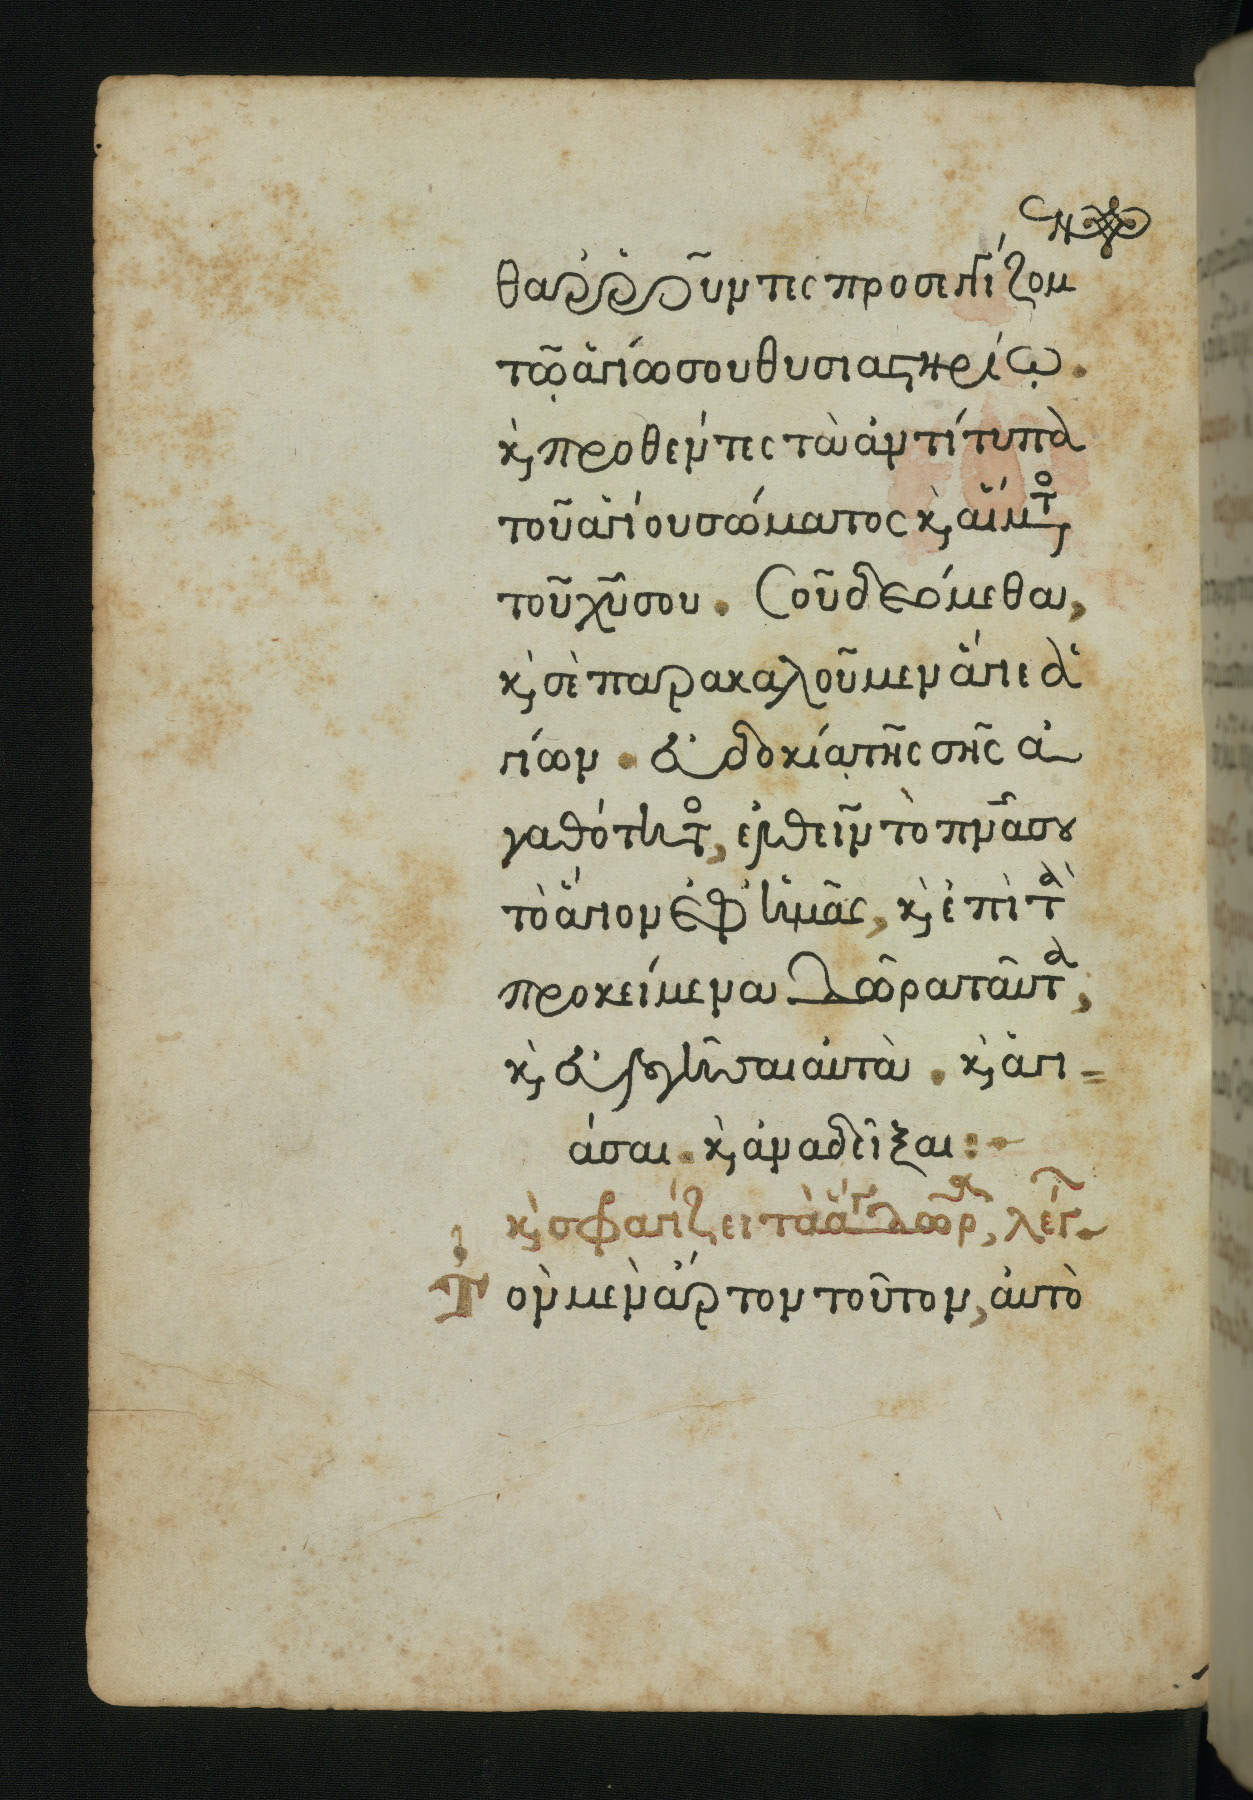 θαῤῥοῦντες προσεγγίζομ
τῷ ἁγίω σου θυσιαστηρίῳ.
κ, προθέντες τὰ ἀντίτυπα
τοῦ ἁγίου σώματος κ, αἵμτο,
τοῦ χῦ σου. Σοῦ δεόμεθα,
κ, σὲ παρακαλοῦμεν ἅγιε ἁ
γίων. εὐδοκίᾳ τῆς σῆς ἀ
γαθότητο, ἐλθεῖν τὸ πνᾶ σου
τὸ ἅγιον ἐφ' ἡμᾶς, κ, ἐπὶ τὰ
προκείμενα δῶρα ταῦτα,
κ, εὐλογῆσαι αὐτὰ. κ, ἁγι=
άσαι. κ, ἀναδεῖξαι:
κ, σφαγίζει τὰ ἅγ δῶρ, λέγ
Τὸν μὲν ἄρτον τοῦτον, αὐτὸ